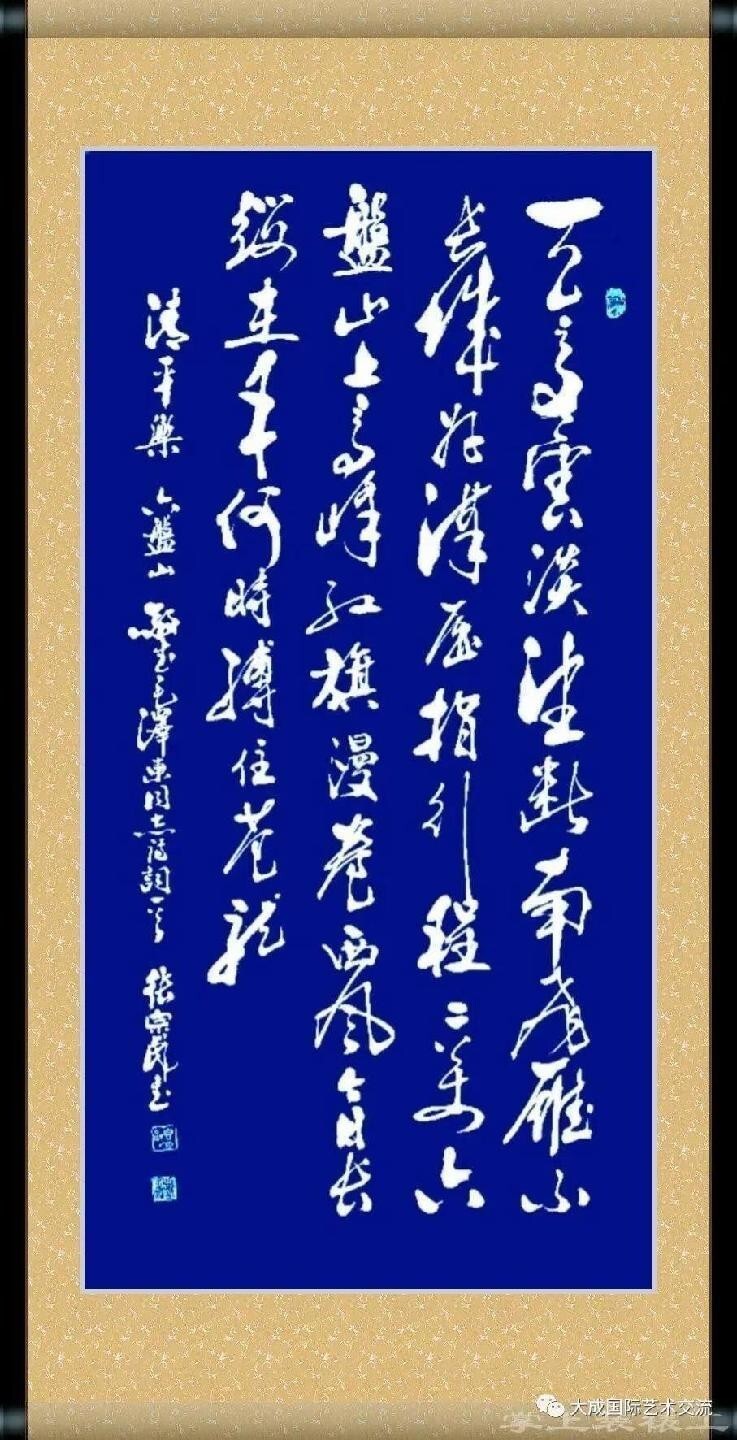 天高雲淡望断南飛雁不
長城好漢屈指行程二萬六
盤山上高峰紅旗漫卷西風今日長
纓在手何時縛住苍龍
清平樂 六盤山 敬书毛澤東同志诗詞一首 張宗书
大成国际艺术交流
掌上装裱